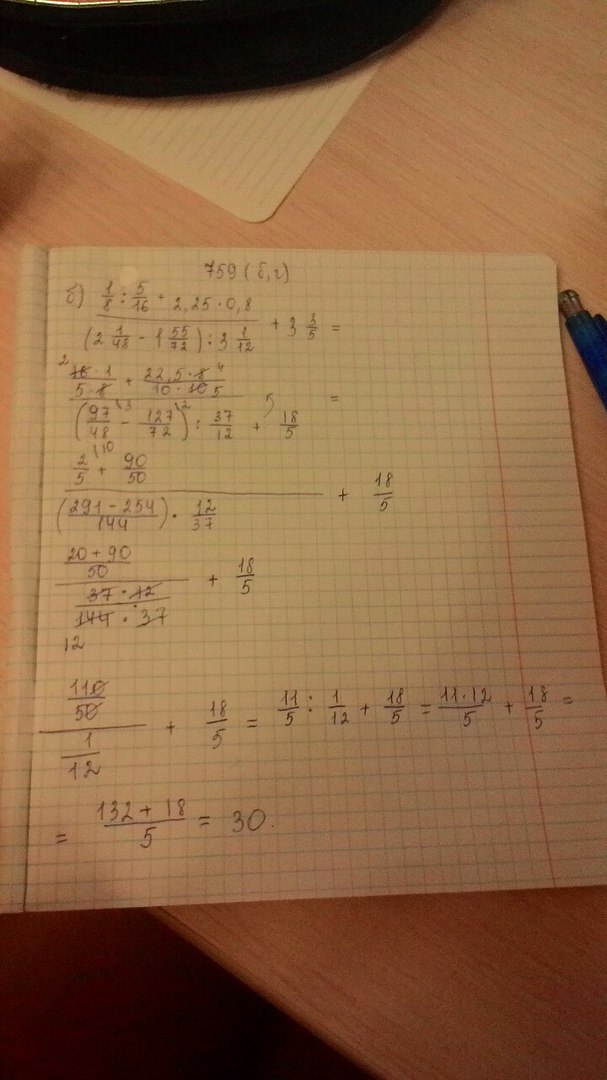 759 (б,г)
б) (1/8 : 5/16 + 2,25 · 0,8) / ((2 1/48 - 1 55/72) : 3 1/12) + 3 3/5 =
(16 · 1 / 5 · 8 + 22,5 · 8 / 10 · 10) / ((97/48 - 127/72) : 37/12) + 18/5 =
(2/5 + 90/50) / ((291 - 254)/144 · 12/37) + 18/5
((20 + 90)/50) / (37 · 12 / 144 · 37) + 18/5
12
(110/50) / (1/12) + 18/5 = 11/5 : 1/12 + 18/5 = 11·12/5 + 18/5 =
= (132 + 18)/5 = 30.